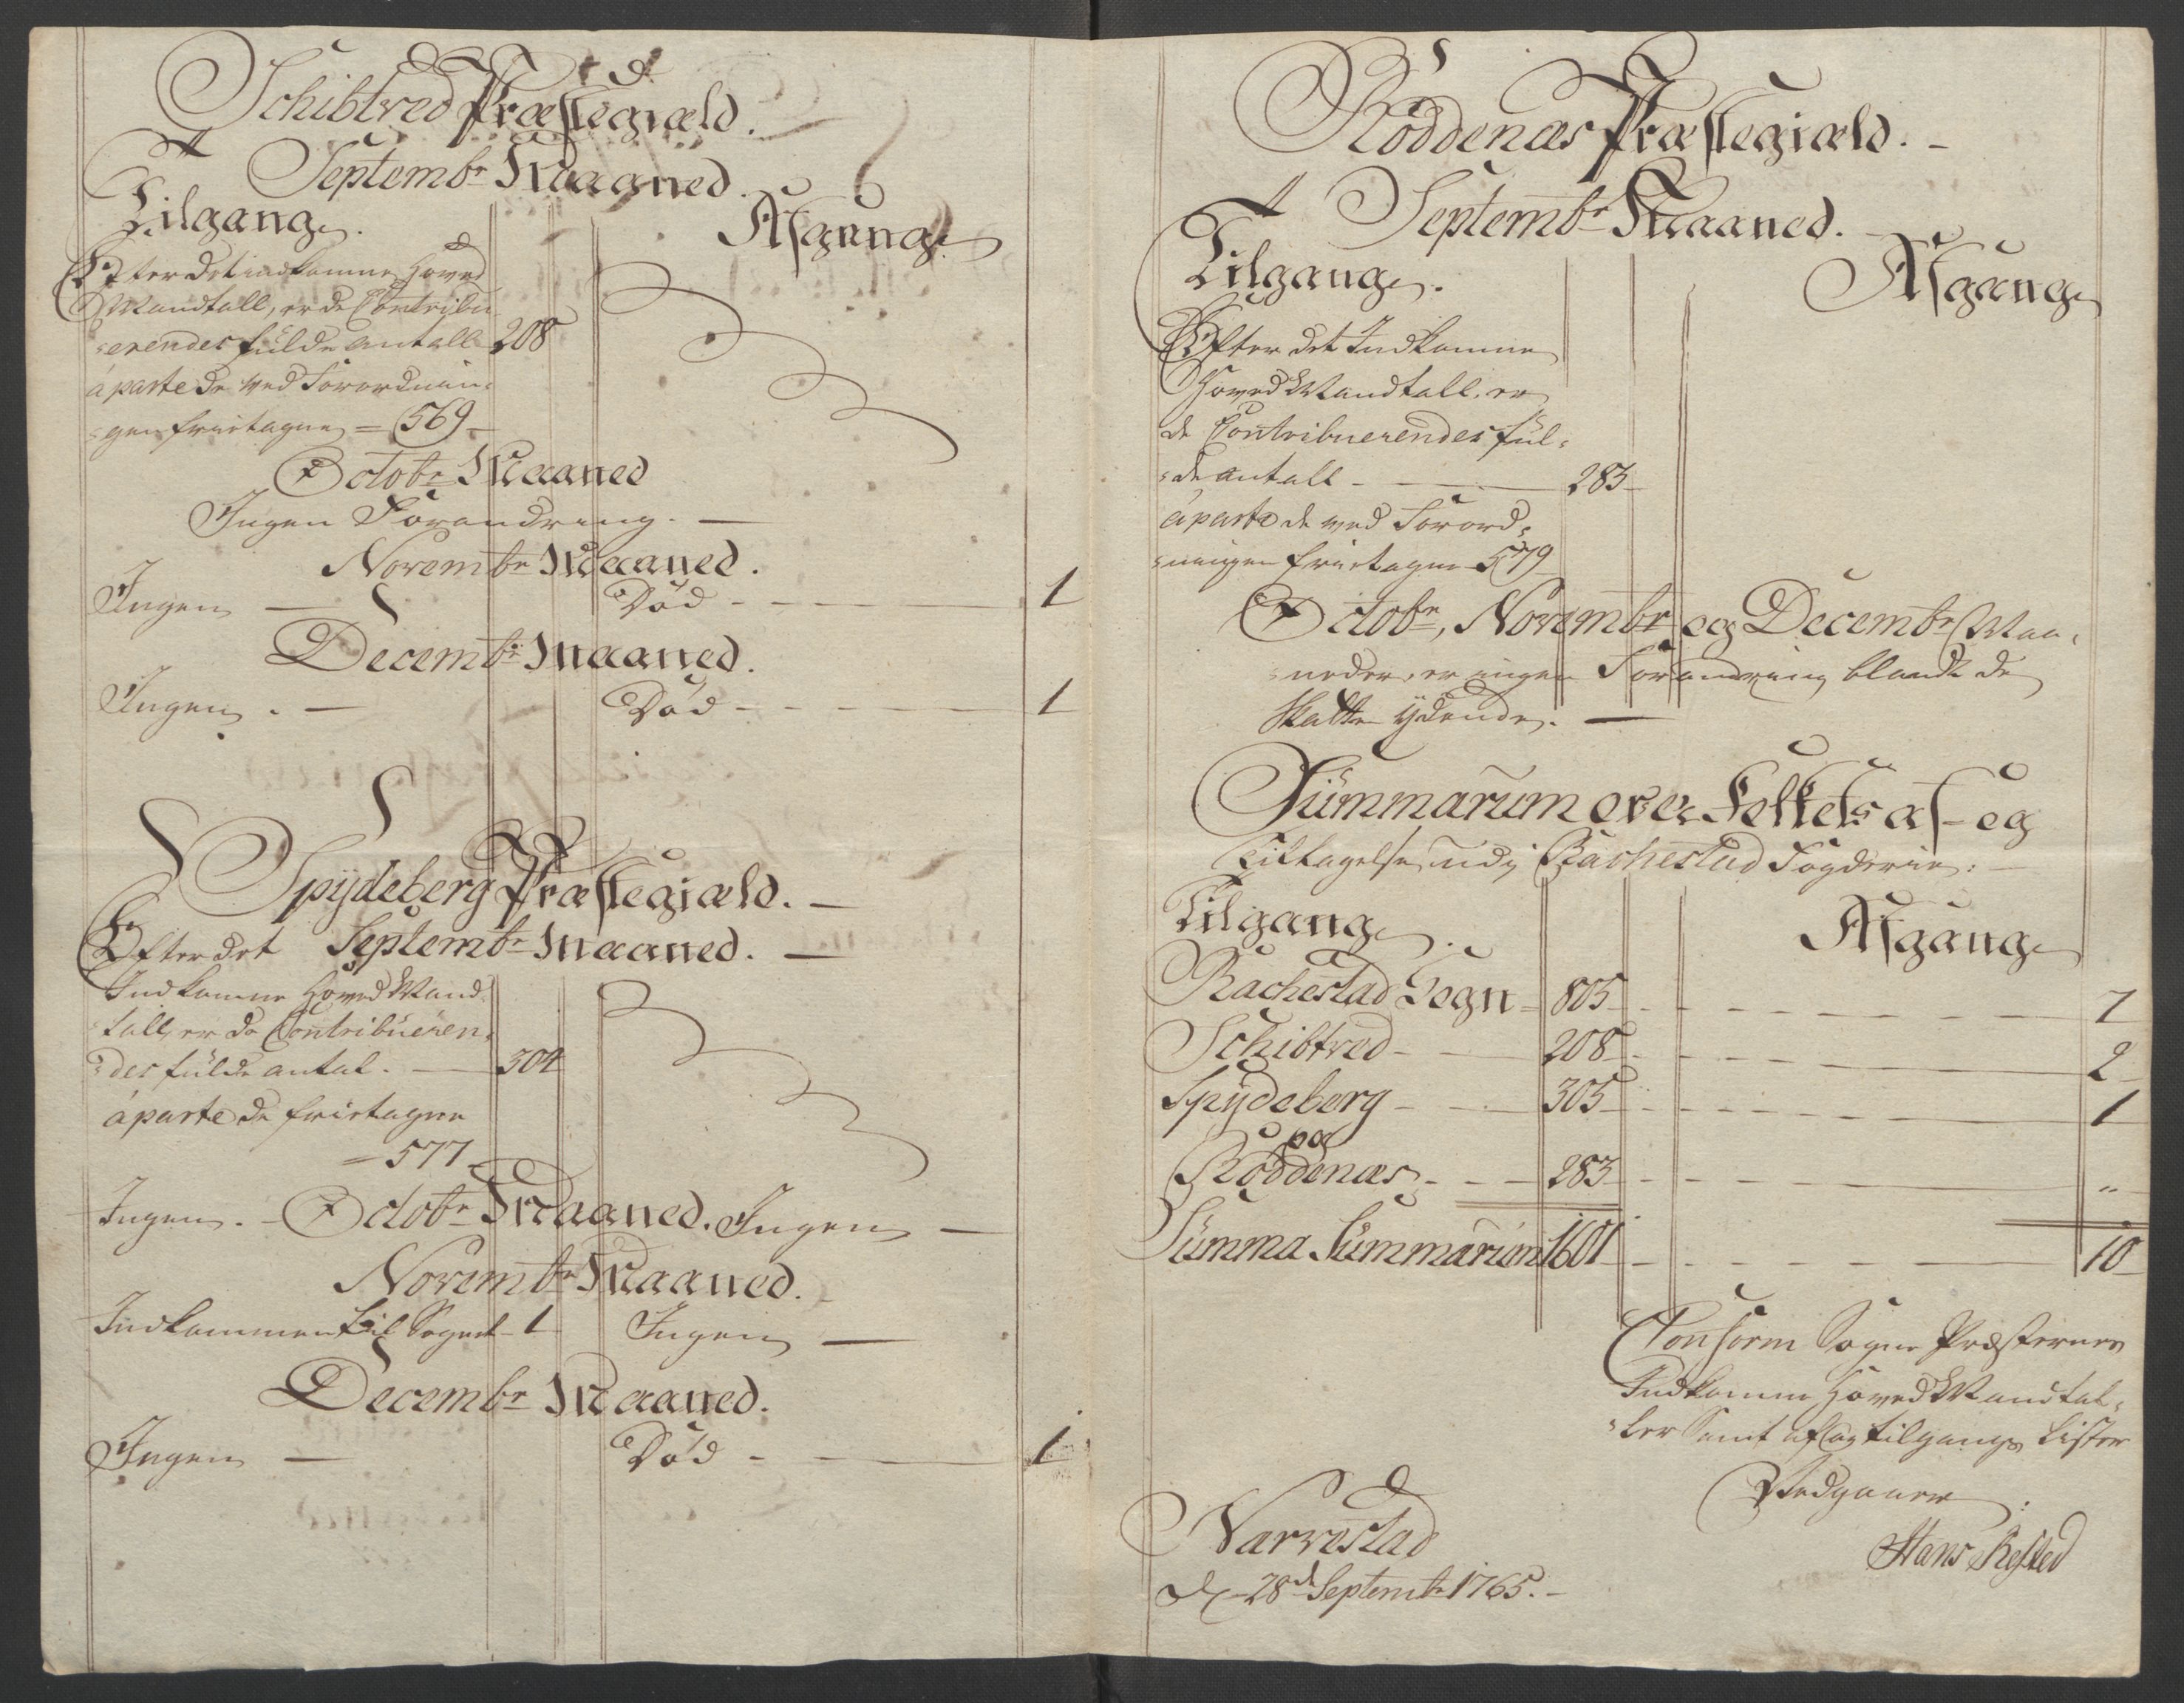 Schibtved Præstegiæld.
Septembr Maaned.
Tilgang. Afgang
Efter det indkomne Hoved
Mandtall, er de Contribu
erendes fulde antall 208
á parte de ved Forordnin-
gen fritagne = 569
Octobr Maaned
Ingen Forandring. —
Novembr Maaned.
Ingen — Död - - - 1
Decembr Maaned.
Ingen. — Död - - - 1
Spÿdeberg Præstegiæld. —
Efter det Septembr Maaned. —
Indkomne Hoved Mand
tall, er de Contribueren-
des fulde antal. — 304
á parte de fritagne
= 577
Ingen. - Octobr Maaned. Ingen —
Novembr Maaned.
Indkommen til Sognet - 1 Ingen —
Decembr Maaned.
Ingen — Död - - 1
Röddenæs Præstegiæld. -
Septembr Maaned.
Tilgang. Afgang
Efter det Indkomne
Hoved Mandtall, er
de Contribuerendes ful-
de antall - — 283
á parte de ved Forord-
ningen fritagne 579
Octobr, Novembr og Decembr Maa-
neder, er ingen Forandring blandt de
Skatte ydende. —
Summarum over Folkets af- og
Tiltagelse udj Rachestad Fogderie:
Tilgang. Afgang
Rachestad Sogn - 805 - - - 7
Schibtved - 208 - - - 2
Spÿdeberg - 305 - - - 1
og
Röddenæs - - 283 - - - "
Summa Summarum 1601 - - - 10
Conform Sogne Præsternes
Indkomne Hoved Mandtal-
ler Samt af og tilgangs Lister
Vedgaaer
Narvestad
d. 28de Septembr 1765. -
Hans Rested